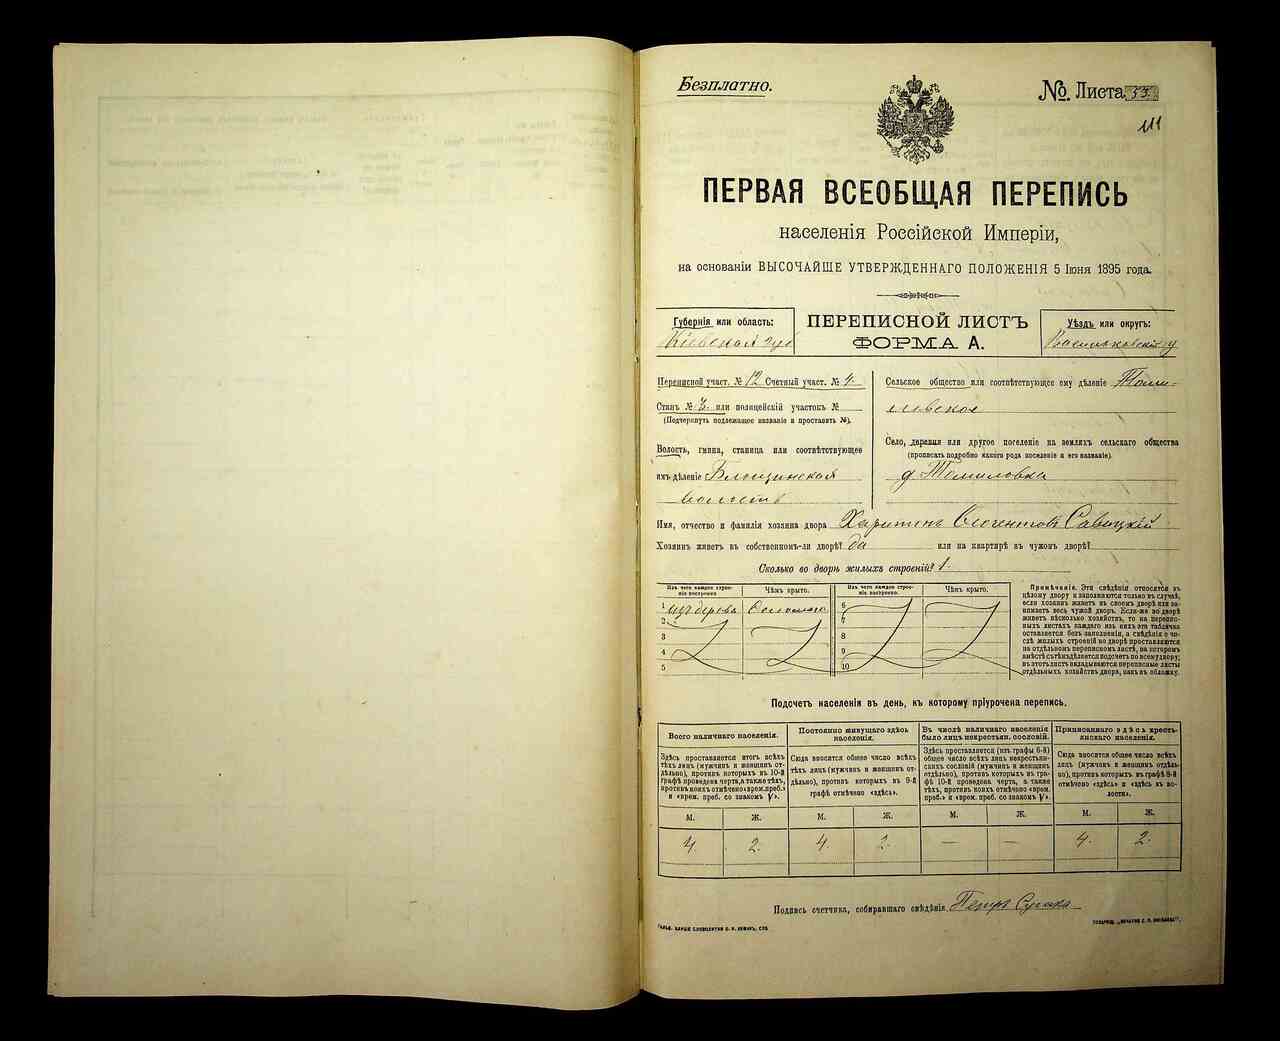 Безплатно.
№ Листа 53.
111
ПЕРВАЯ ВСЕОБЩАЯ ПЕРЕПИСЬ
населенія Россійской Имперіи,
на основаніи ВЫСОЧАЙШЕ УТВЕРЖДЕННАГО ПОЛОЖЕНІЯ 5 Іюня 1895 года.
Губернія или область:
Кіевская губ
ПЕРЕПИСНОЙ ЛИСТЪ
ФОРМА А.
Уѣздъ или округъ:
Васильковскій у
Переписной участ. № 12 Счетный участ. № 4.
Станъ № 3. или полицейскій участокъ №
(Подчеркнуть подлежащее названіе и проставить №).
Волость, гмина, станица или соотвѣтствующее
имъ дѣленіе Блощинская
волость
Сельское общество или соотвѣтствующее ему дѣленіе Томи-
ловское
Село, деревня или другое поселеніе на земляхъ сельскаго общества
(прописать подробно какого рода поселеніе и его названіе).
д. Томиловка
Имя, отчество и фамилія хозяина двора Харитонъ Савицкій
Хозяинъ живетъ въ собственномъ-ли дворѣ? да или на квартирѣ въ чужомъ дворѣ?
Сколько во дворѣ жилыхъ строеній? 1.
Изъ чего каждое строе-
ніе построено
Чѣмъ крыто.
Изъ чего каждое строе-
ніе построено.
Чѣмъ крыто.
1 изъ дерева Соломою
2
3
4
5
6
7
8
9
10
Примѣчаніе. Эти свѣдѣнія относятся къ
цѣлому двору и заполняются только въ случаѣ,
если хозяинъ живетъ въ своемъ дворѣ или за-
нимаетъ весь чужой дворъ. Если-же во дворѣ
живетъ нѣсколько хозяйствъ, то на перепис-
ныхъ листахъ каждаго изъ нихъ эта табличка
оставляется безъ заполненія, а свѣдѣнія о чи-
слѣ жилыхъ строеній во дворѣ проставляются
на отдѣльномъ переписномъ листѣ, на которомъ
вмѣстѣ съ тѣмъ дѣлается подсчетъ по всему двору;
въ этотъ листъ вкладываются переписные листы
отдѣльныхъ хозяйствъ двора, какъ въ обложку.
Подсчетъ населенія въ день, къ которому пріурочена перепись.
Всего наличнаго населенія.
Здѣсь проставляется итогъ всѣхъ
тѣхъ лицъ (мужчинъ и женщинъ от-
дѣльно), противъ которыхъ въ 10-й
графѣ проведена черта, а также тѣхъ,
противъ коихъ отмѣчено «врем. преб.»
и «врем. преб. со знакомъ V».
Постоянно живущаго здѣсь
населенія.
Сюда вносится общее число всѣхъ
тѣхъ лицъ (мужчинъ и женщинъ от-
дѣльно), противъ которыхъ въ 9-й
графѣ отмѣчено «здѣсь».
Въ числѣ наличнаго населенія
было лицъ некрестьян. сословій.
Здѣсь проставляется (изъ графы 6-й)
общее число всѣхъ лицъ некрестьян-
скихъ сословій (мужчинъ и женщинъ
отдѣльно), противъ которыхъ въ гра-
фѣ 10-й проведена черта, а также
тѣхъ, противъ коихъ отмѣчено «врем.
преб.» и «врем. преб. со знакомъ V».
Приписаннаго здѣсь кресть-
янскаго населенія.
Сюда вносится общее число всѣхъ
лицъ (мужчинъ и женщинъ отдѣль-
но), противъ которыхъ въ графѣ 8-й
отмѣчено «здѣсь» и «здѣсь въ во-
лости».
М. Ж. М. Ж. М. Ж. М. Ж.
4. 2. 4. 2. — — 4. 2.
Подпись счетчика, собиравшаго свѣдѣнія Петръ